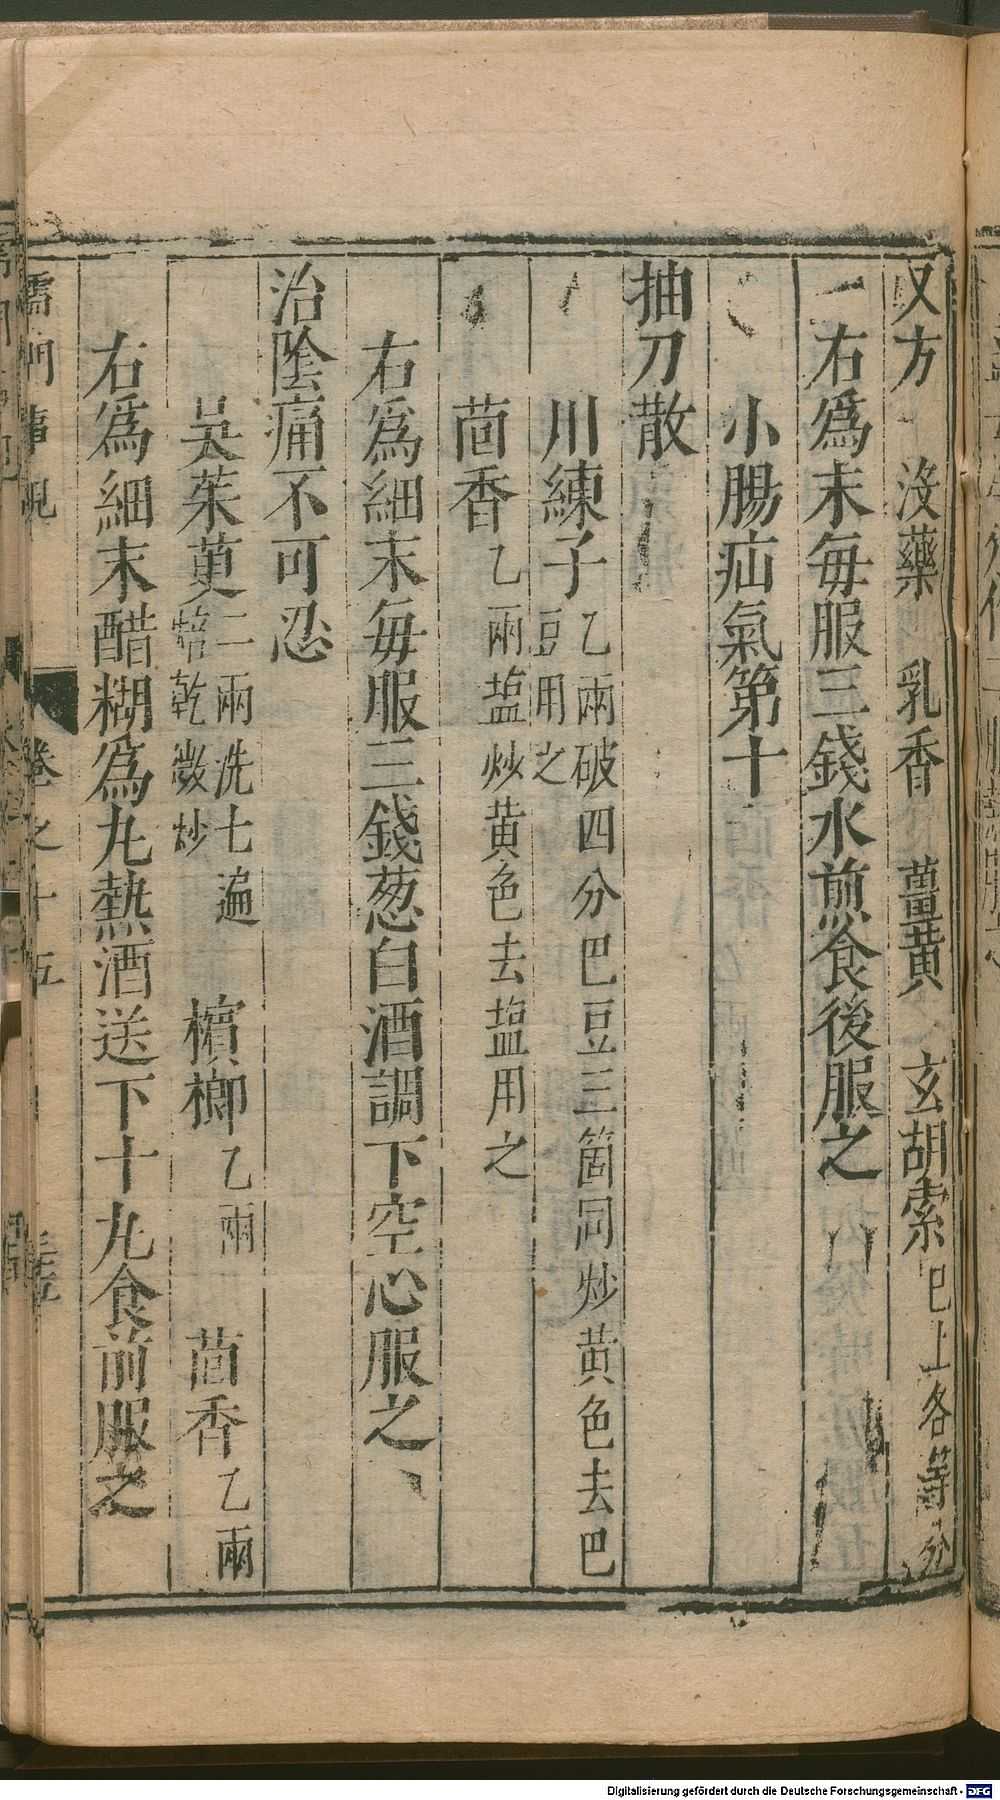 又方　沒藥　乳香　薑黃　玄胡索已上各等分
右爲末每服三錢水煎食後服之
小腸疝氣第十
抽刀散
川練子乙兩破四分巴豆三箇同炒黄色去巴豆用之
茴香乙兩塩炒黄色去塩用之
右爲細末每服三錢葱白酒調下空心服之
治陰痛不可忍
吴茱萸二兩洗七遍焙乾微炒　檳榔乙兩　茴香乙兩
右爲細末醋糊爲丸熱酒送下十丸食前服之
儒門事親　卷之十五
Digitalisierung gefördert durch die Deutsche Forschungsgemeinschaft - DFG